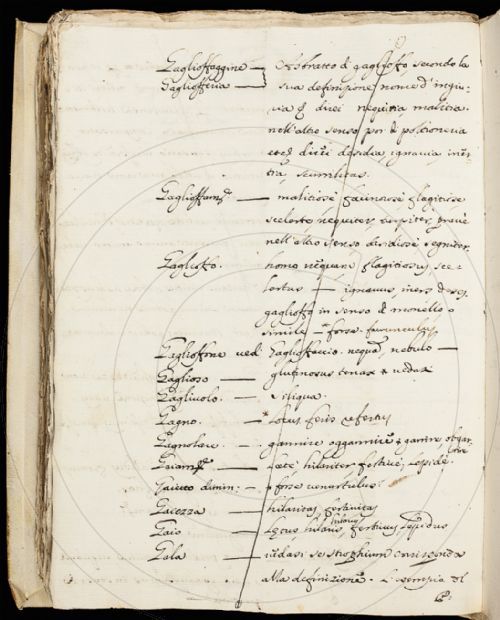 Gaglioffaggine — Astratto di gaglioffo, secondo la
Gaglioffería — sua definizione nome d'ingiu-
ria è direi nequizia malizia.
nell'altro senso poi di poltroneria
direi desidia, ignavia iner-
tia, scurrilitas.
— malitiosè facinorosè flagitiosè
scelestè nequiter, turpiter, pravè
nell'altro senso desidiosè segniter.
Gaglioffo. homo nequam flagitiosus sce-
lestus — ignavus, iners, deses,
gaglioffo in senso di monello o
simile — forse furunculus
Gaglioffone ved. Gaglioffaccio. nequam, nebulo —
Gaglioso — glutinosus tenax
Gagliuolo. — siliqua.
Gagno. — Locus feris refertus
Gagnolare. — gannire oggannire
— Laetè, hilariter, festivè, lepidè.
Gaietto dimin. — forse venustulus.
Gaiezza — hilaritas festivitas
Gaio — Laetus, hilaris, festivus, lepidus
Gala — vedasi se strophium corrisponda
alla definizione. L'esempio del